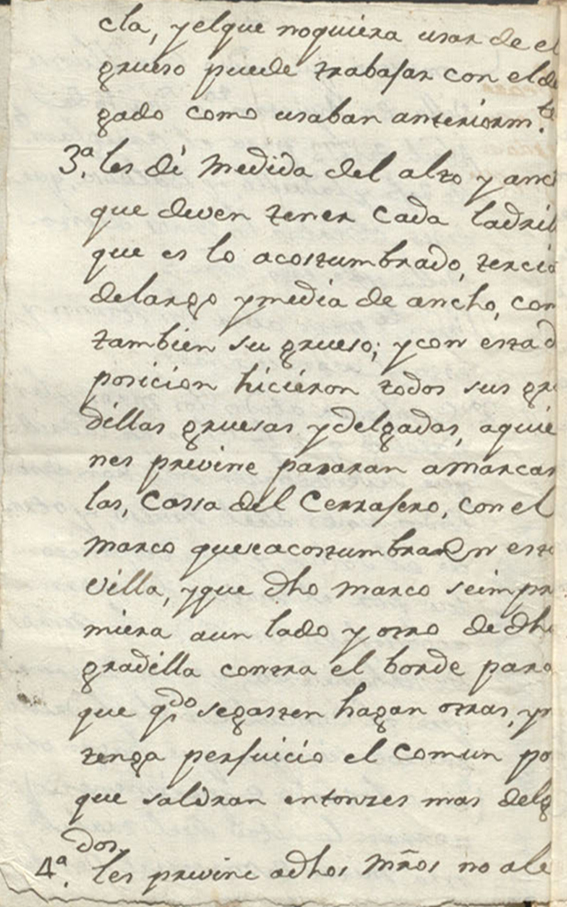 cla, y el que no quiera usar de el
grueso puede trabajar con el de
gado como usaban anteriorm.te
3.a les di Medida del alto y anc
que deven tener cada ladril
que es lo acostumbrado, tercia
de largo y media de ancho, con
tambien su grueso; y con esta d
posicion hicieron todos sus gra
dillas gruesas y delgadas, aquie
nes previne pasaran a Marcar
las, Cassa del Cerrajero, con el
Marco que se acostumbra en esta
villa, y que dho Marco se impr
miera a un lado y otro de dha
gradilla contra el borde para
que q.do se gasten hagan otras, y n
tenga perjuicio el Comun po
que saldran entonzes mas delg
dos,
4.a les previne a dhos Mrõs no ale